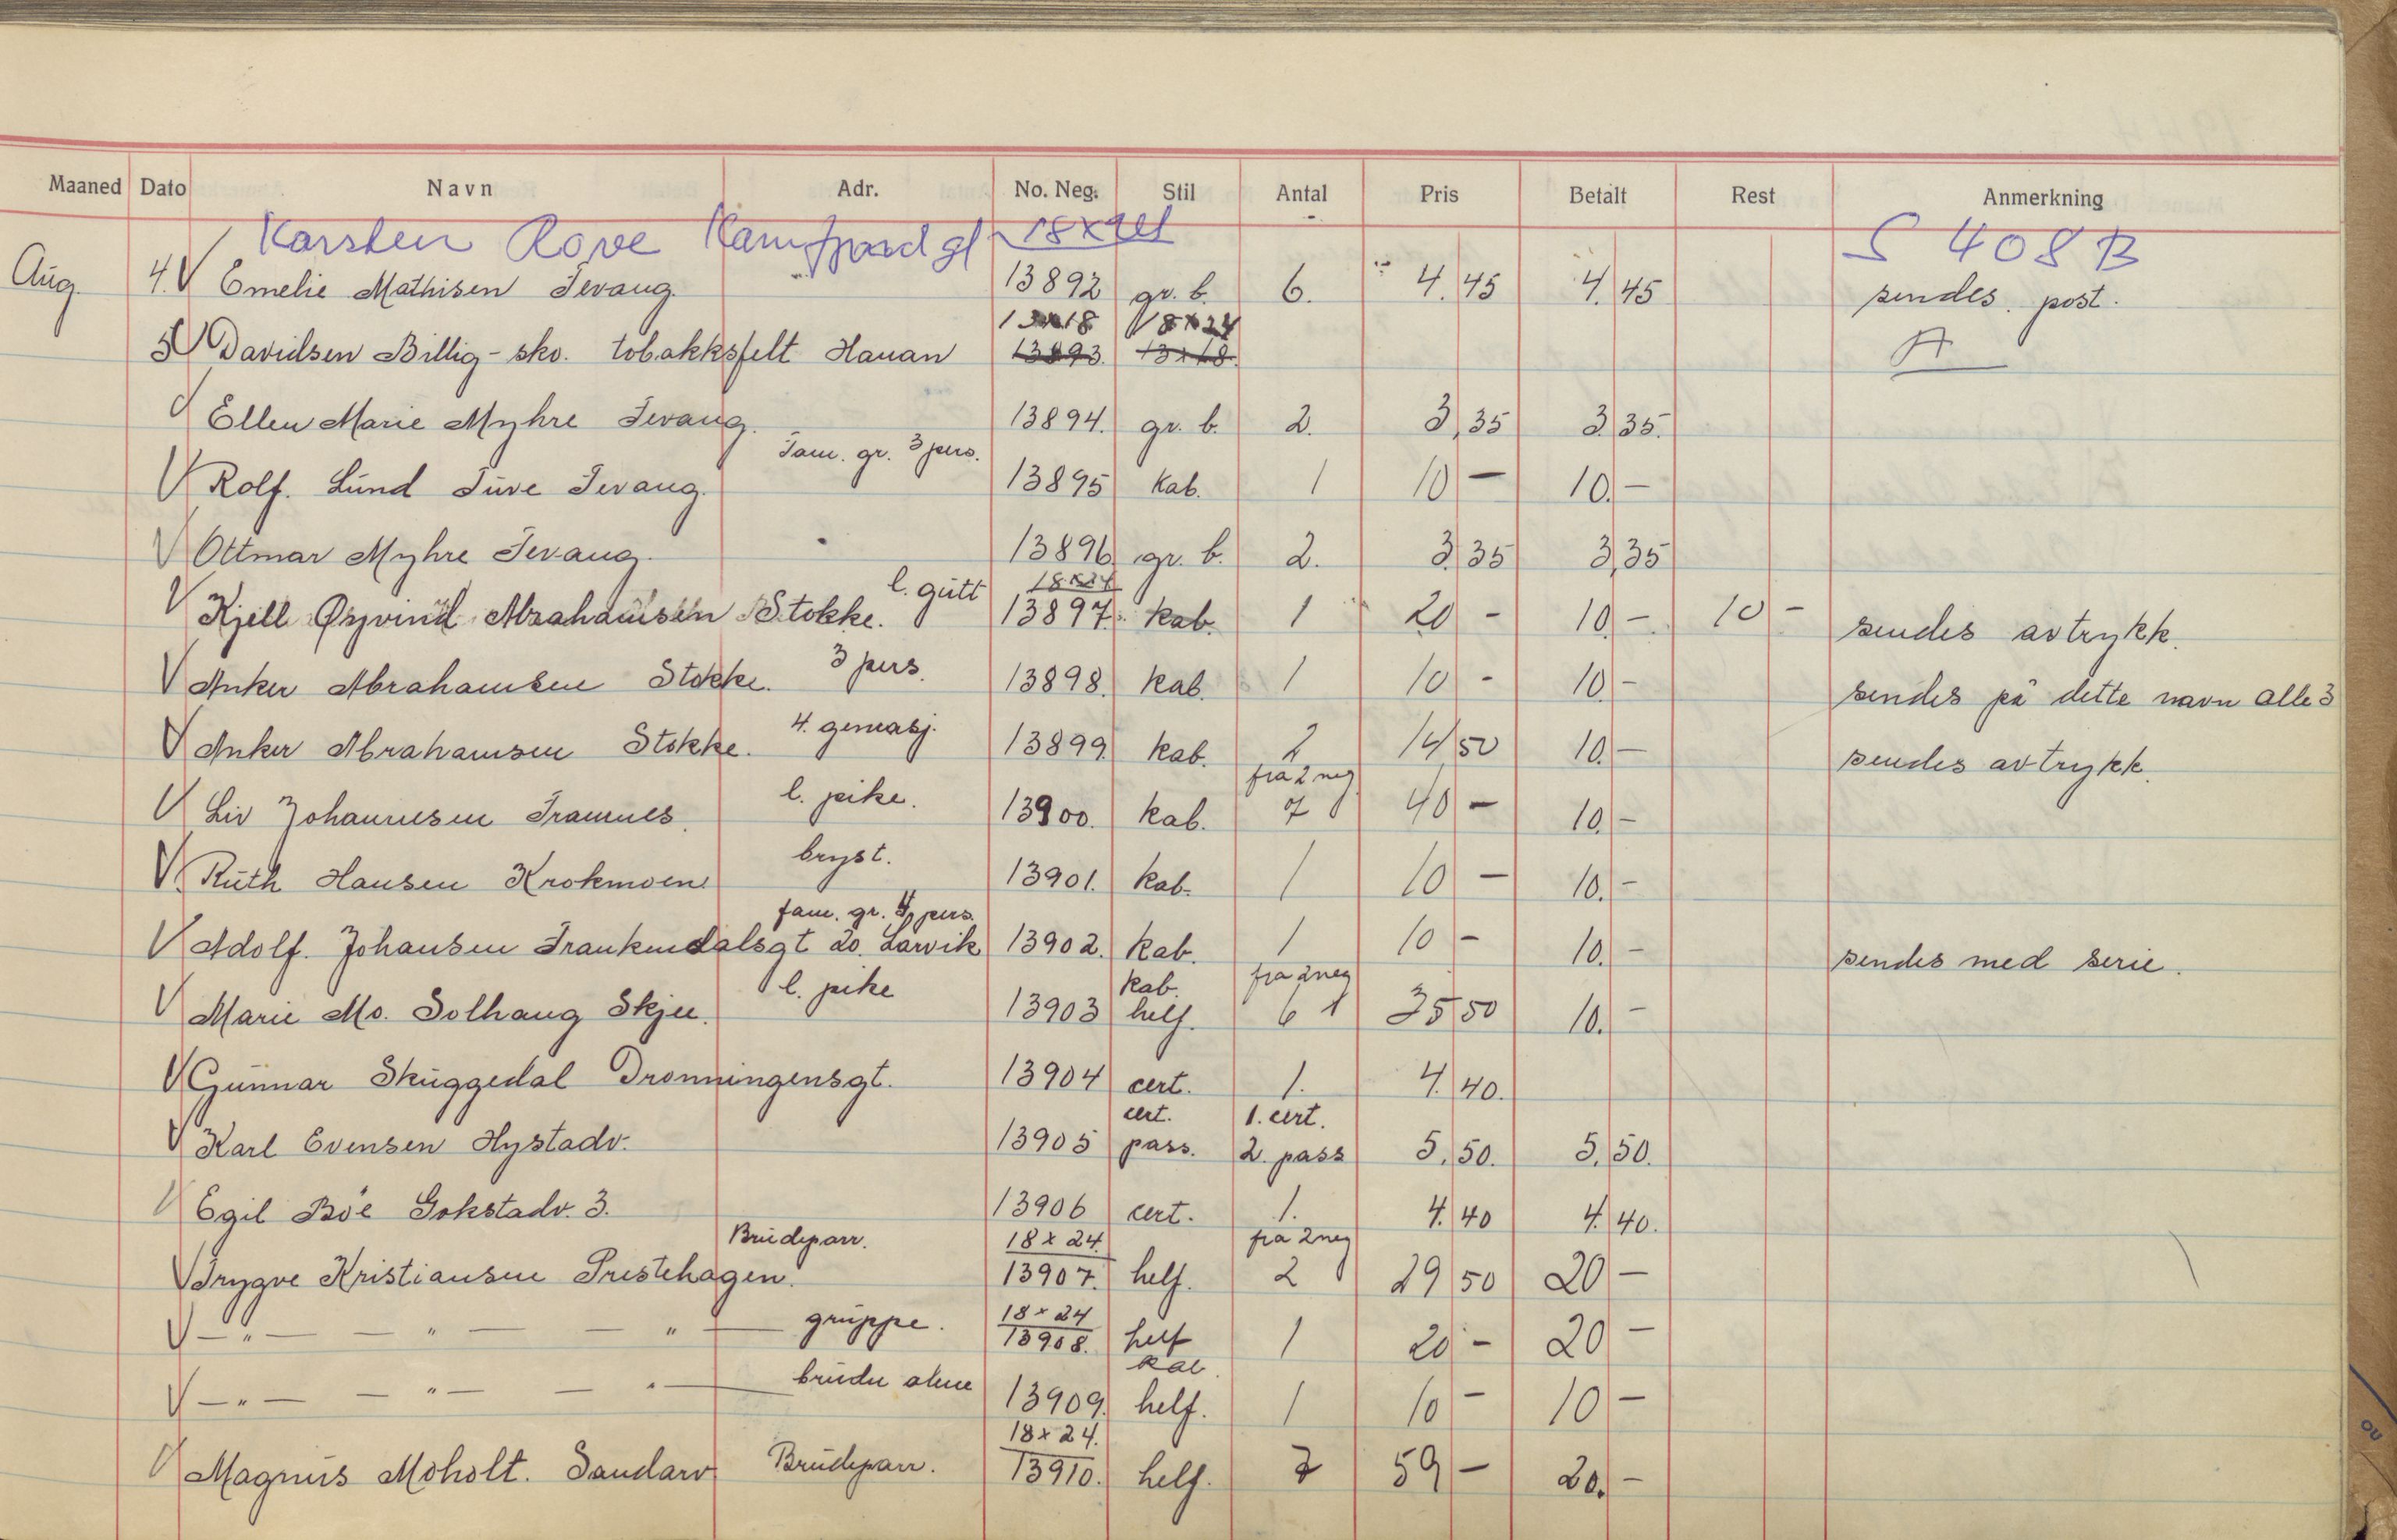 Maaned Dato Navn Adr. No. Neg. Stil Antal Pris Betalt Rest Anmerkning
Karsten Rove Kamfjordgt 18x24 S 408 B
Aug. 4. V Emelie Mathisen Tevang. 13892 gr. b. 6. 4.45 4.45 sendes post.
13x18 18x24
5 V Davidsen Billig-sko. tobakksfelt Hauan 13893. 13x18. A
V Ellen Marie Myhre Tevang. 13894. gr. b. 2. 3,35 3.35.
Fam. gr. 3 pers.
V Rolf. Lund Tuve Tevang. 13895 Kab. 1 10 - 10.-
V Ottmar Myhre Tevang. 13896 gr. b. 2. 3.35 3,35
l. gutt 18x24
V Kjell Øyvind Abrahamsen Stokke. 13897. kab. 1 20 - 10.- 10 - sendes avtrykk.
3 pers.
V Anker Abrahamsen Stokke. 13898. kab. 1 10 - 10.- sendes på dette navn alle 3
4. generasj.
V Anker Abrahamsen Stokke. 13899. kab. 2 14/50 10.- sendes avtrykk.
l. pike. fra 2 neg
V Liv Johannesen Framnes. 13900. kab. 7 40 - 10.-
bryst.
V Ruth Hansen Krokmoen 13901. kab. 1 10 - 10.-
fam. gr. 4 pers.
V Adolf. Johansen Frankendalsgt 20. Larvik 13902. kab. 1 10 - 10.- sendes med serie.
l. pike kab. fra 2 neg
V Marie Mo. Solhaug Skjee. 13903 helf. 6 1 35 50 10.-
V Gunnar Skuggedal Dronningensgt. 13904 cert. 1. 4.40.
cert. 1. cert.
V Karl Evensen Hystadv. 13905 pass. 2. pass 5.50. 5.50.
V Egil Bøe Gokstadv. 3. 13906 cert. 1. 4.40 4.40.
Brudeparr. 18 x 24. fra 2 neg
V Trygve Kristiansen Prestehagen. 13907. helf. 2 29 50 20 -
18 x 24
V - " - - " - - " - gruppe. 13908. helf 1 20 - 20 -
kab.
V - " - - " - - " - bruden alene 13909. helf. 1 10 - 10 -
18 x 24.
V Magnus Moholt. Sandarv Brudeparr. 13910. helf. 7 59 - 20.-